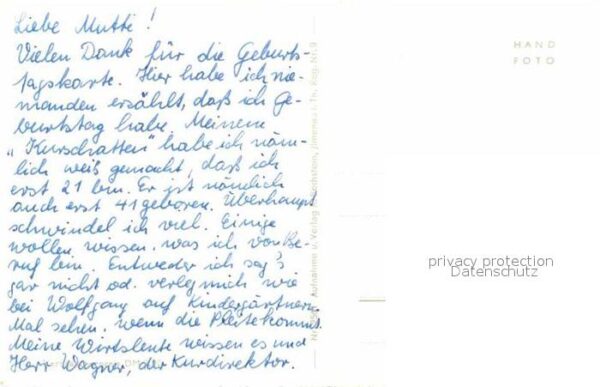 Liebe Mutti!
Vielen Dank für die Geburts-
tagskarte. Hier habe ich nie-
manden erzählt, daß ich Ge-
burtstag habe. Meinem
„Kurschatten" habe ich näm-
lich weiß gemacht, daß ich
erst 21 bin. Er ist nämlich
auch erst 41 geboren. Überhaupt
schwindel ich viel. Einige
wollen wissen, was ich von Be-
ruf bin. Entweder ich sag's
gar nicht od. verleg mich wie
bei Wolfgang auf Kindergärtnerin.
Mal sehen, wenn die Pleite kommt.
Meine Wirtsleute wissen es und
Herr Wagner, der Kurdirektor.
Aufnahme u. Verlag
HAND
FOTO
privacy protection
Datenschutz